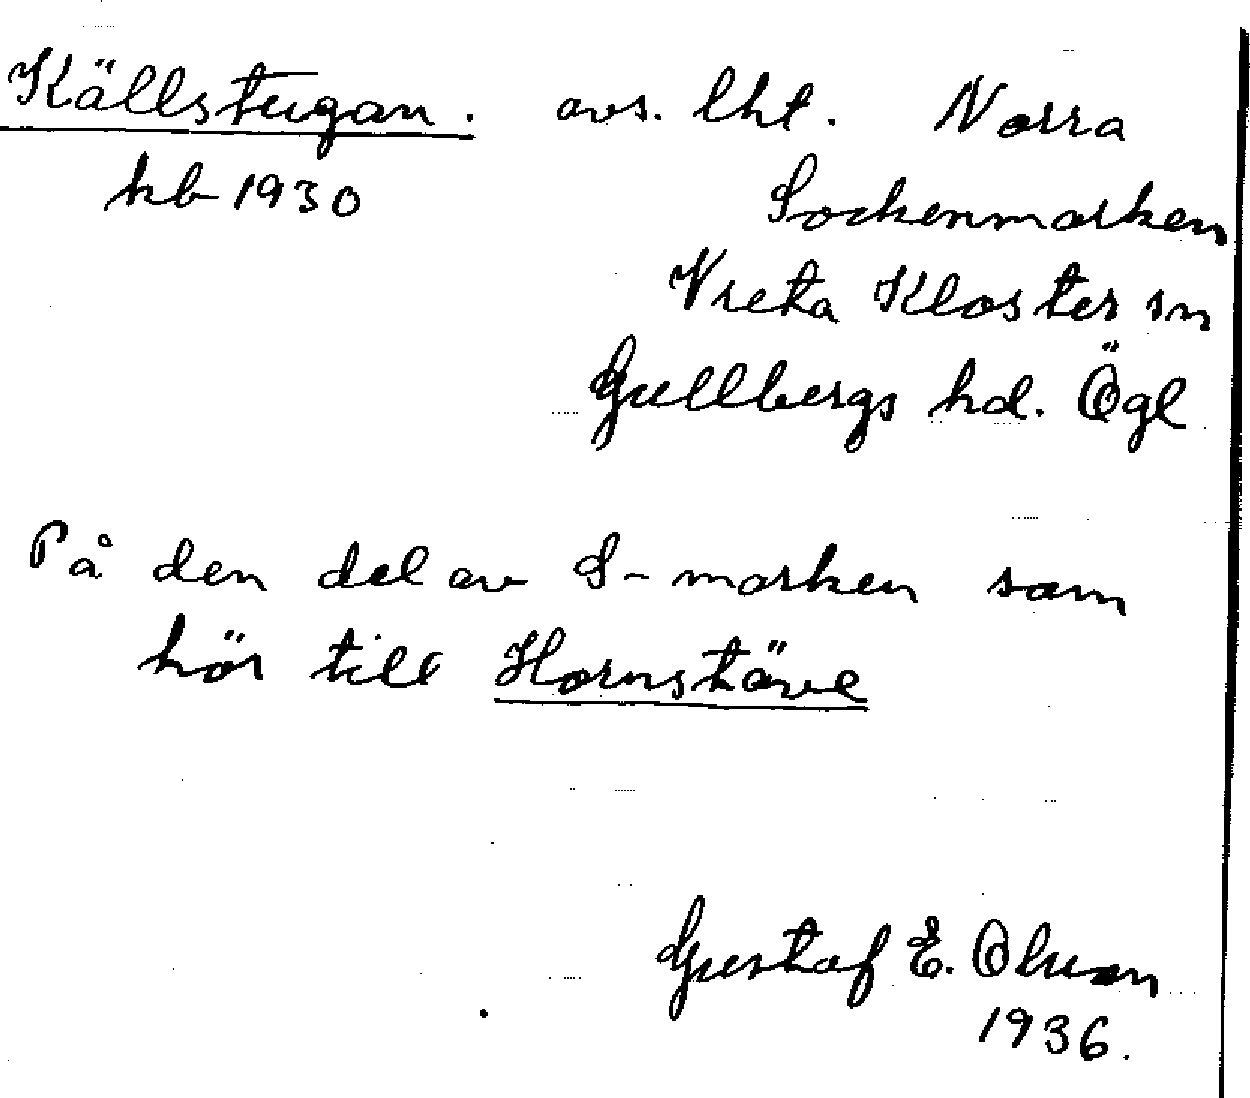 Källstugan. avs. lht. Norra
kb 1930 Sockenmarken
Vreta Kloster sn
Gullbergs hd. Ögl
På den del av S-marken som
hör till Hornstäve
Gustaf E. Olsson
1936.